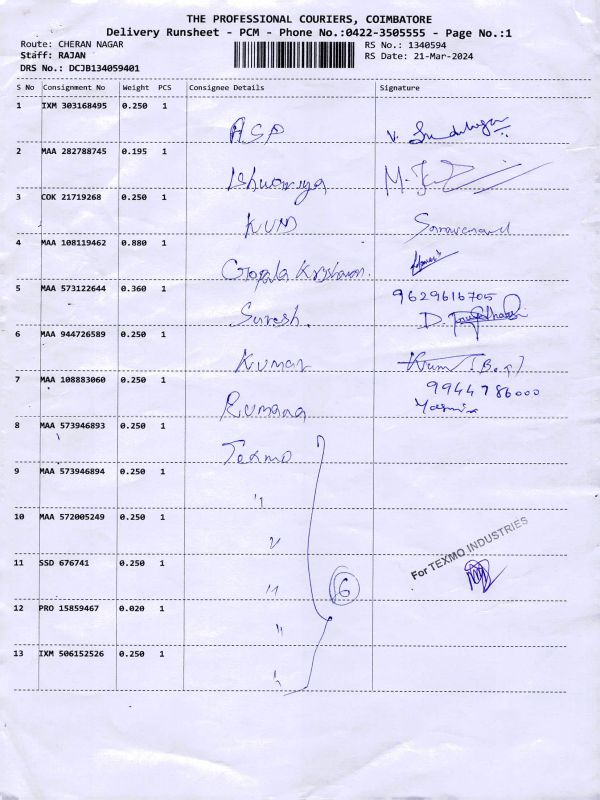 THE PROFESSIONAL COURIERS, COIMBATORE
Delivery Runsheet - PCM - Phone No.:0422-3505555 - Page No.:1
Route: CHERAN NAGAR RS No.: 1340594
Staff: RAJAN RS Date: 21-Mar-2024
DRS No.: DCJB134059401
S No Consignment No Weight PCS Consignee Details Signature
1 IXM 303168495 0.250 1
ASP V.
2 MAA 282788745 0.195 1
Ishwariya M.
3 COK 21719268 0.250 1
KUN
4 MAA 108119462 0.880 1
Gopala Kryshanan.
5 MAA 573122644 0.360 1 9629616705
Suresh. D.
6 MAA 944726589 0.250 1
Kumar Kum
7 MAA 108883060 0.250 1 9944786000
Rumana Yasmin
8 MAA 573946893 0.250 1
Texmo
9 MAA 573946894 0.250 1
"
10 MAA 572005249 0.250 1
"
11 SSD 676741 0.250 1 For TEXMO INDUSTRIES
" 6
12 PRO 15859467 0.020 1
"
13 IXM 506152526 0.250 1
"